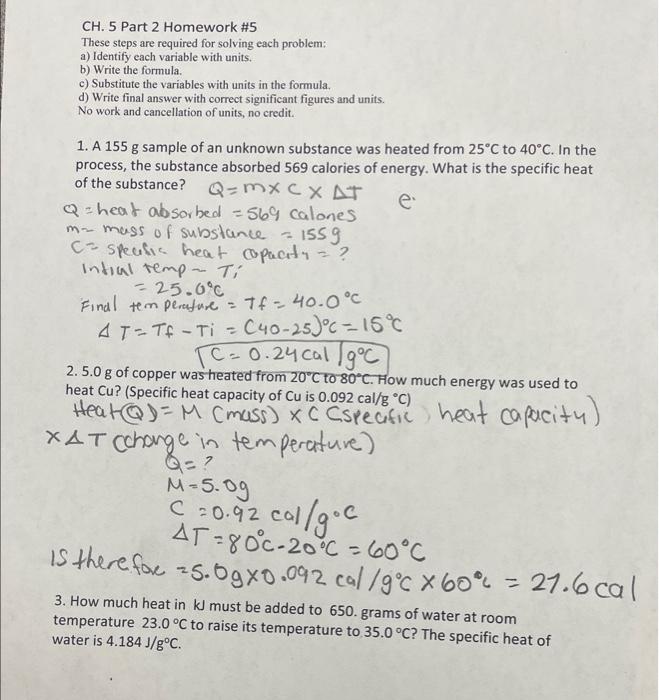 CH. 5 Part 2 Homework #5
These steps are required for solving each problem:
a) Identify each variable with units.
b) Write the formula.
c) Substitute the variables with units in the formula.
d) Write final answer with correct significant figures and units.
No work and cancellation of units, no credit.
1. A 155 g sample of an unknown substance was heated from 25°C to 40°C. In the
process, the substance absorbed 569 calories of energy. What is the specific heat
of the substance? Q = m x C x ΔT
e.
Q = heat absorbed = 569 calories
m ~ mass of substance = 155g
C = specific heat capacity = ?
Intial temp ~ Ti
= 25.0°C
Final temperature = Tf = 40.0°C
ΔT = Tf - Ti = (40-25)°C = 15°C
C = 0.24 cal/g°C
2. 5.0 g of copper was heated from 20°C to 80°C. How much energy was used to
heat Cu? (Specific heat capacity of Cu is 0.092 cal/g °C)
Heat(Q) = M (mass) x C (specific heat capacity)
x ΔT (change in temperature)
Q = ?
M = 5.0g
C = 0.92 cal/g°C
ΔT = 80°C - 20°C = 60°C
is therefore = 5.0g x 0.092 cal/g°C x 60°C = 27.6 cal
3. How much heat in kJ must be added to 650. grams of water at room
temperature 23.0 °C to raise its temperature to 35.0 °C? The specific heat of
water is 4.184 J/g°C.